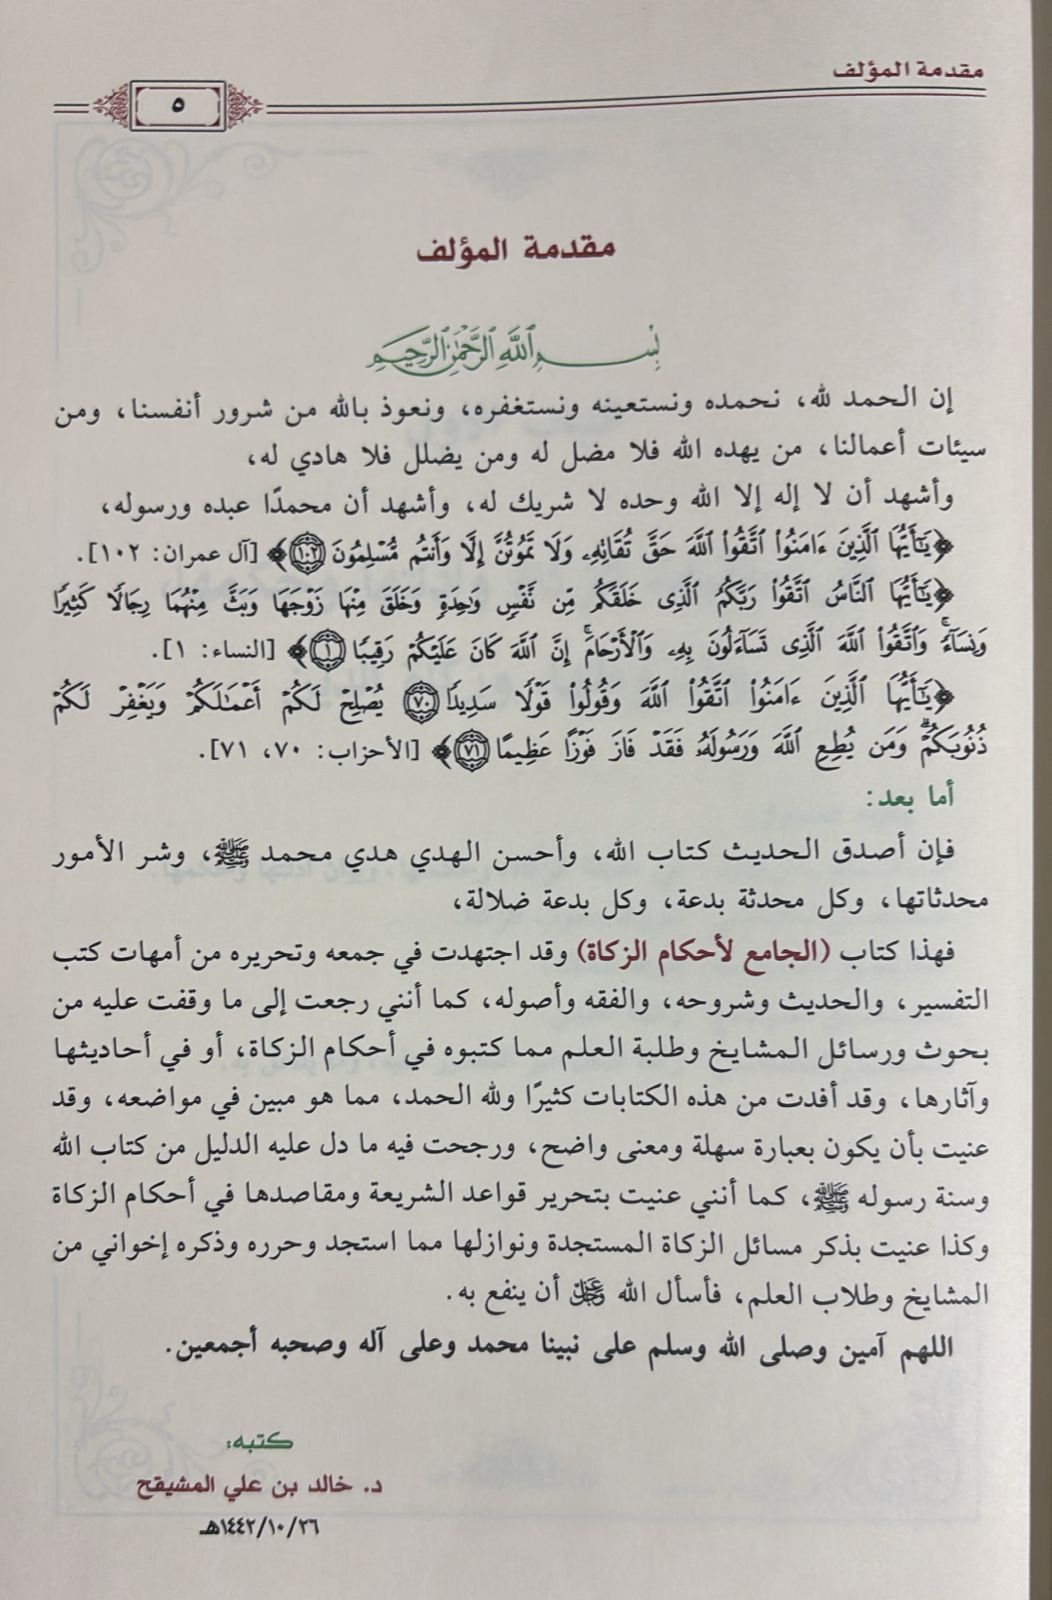 مقدمة المؤلف
٥
مقدمة المؤلف
بِسْمِ ٱللَّهِ ٱلرَّحْمَٰنِ ٱلرَّحِيمِ
إن الحمد لله، نحمده ونستعينه ونستغفره، ونعوذ بالله من شرور أنفسنا، ومن
سيئات أعمالنا، من يهده الله فلا مضل له ومن يضلل فلا هادي له،
وأشهد أن لا إله إلا الله وحده لا شريك له، وأشهد أن محمدًا عبده ورسوله،
﴿يَٰٓأَيُّهَا ٱلَّذِينَ ءَامَنُوا۟ ٱتَّقُوا۟ ٱللَّهَ حَقَّ تُقَاتِهِۦ وَلَا تَمُوتُنَّ إِلَّا وَأَنتُم مُّسْلِمُونَ ١٠٢﴾ [آل عمران: ١٠٢].
﴿يَٰٓأَيُّهَا ٱلنَّاسُ ٱتَّقُوا۟ رَبَّكُمُ ٱلَّذِى خَلَقَكُم مِّن نَّفْسٍ وَٰحِدَةٍ وَخَلَقَ مِنْهَا زَوْجَهَا وَبَثَّ مِنْهُمَا رِجَالًا كَثِيرًا
وَنِسَآءً ۚ وَٱتَّقُوا۟ ٱللَّهَ ٱلَّذِى تَسَآءَلُونَ بِهِۦ وَٱلْأَرْحَامَ ۚ إِنَّ ٱللَّهَ كَانَ عَلَيْكُمْ رَقِيبًا ١﴾ [النساء: ١].
﴿يَٰٓأَيُّهَا ٱلَّذِينَ ءَامَنُوا۟ ٱتَّقُوا۟ ٱللَّهَ وَقُولُوا۟ قَوْلًا سَدِيدًا ٧٠ يُصْلِحْ لَكُمْ أَعْمَٰلَكُمْ وَيَغْفِرْ لَكُمْ
ذُنُوبَكُمْ ۗ وَمَن يُطِعِ ٱللَّهَ وَرَسُولَهُۥ فَقَدْ فَازَ فَوْزًا عَظِيمًا ٧١﴾ [الأحزاب: ٧٠، ٧١].
أما بعد:
فإن أصدق الحديث كتاب الله، وأحسن الهدي هدي محمد ﷺ، وشر الأمور
محدثاتها، وكل محدثة بدعة، وكل بدعة ضلالة،
فهذا كتاب (الجامع لأحكام الزكاة) وقد اجتهدت في جمعه وتحريره من أمهات كتب
التفسير، والحديث وشروحه، والفقه وأصوله، كما أنني رجعت إلى ما وقفت عليه من
بحوث ورسائل المشايخ وطلبة العلم مما كتبوه في أحكام الزكاة، أو في أحاديثها
وآثارها، وقد أفدت من هذه الكتابات كثيرًا ولله الحمد، مما هو مبين في مواضعه، وقد
عنيت بأن يكون بعبارة سهلة ومعنى واضح، ورجحت فيه ما دل عليه الدليل من كتاب الله
وسنة رسوله ﷺ، كما أنني عنيت بتحرير قواعد الشريعة ومقاصدها في أحكام الزكاة
وكذا عنيت بذكر مسائل الزكاة المستجدة ونوازلها مما استجد وحرره وذكره إخواني من
المشايخ وطلاب العلم، فأسأل الله عز وجل أن ينفع به.
اللهم آمين وصلى الله وسلم على نبينا محمد وعلى آله وصحبه أجمعين.
كتبه:
د. خالد بن علي المشيقح
١٤٤٢/١٠/٢٦هـ